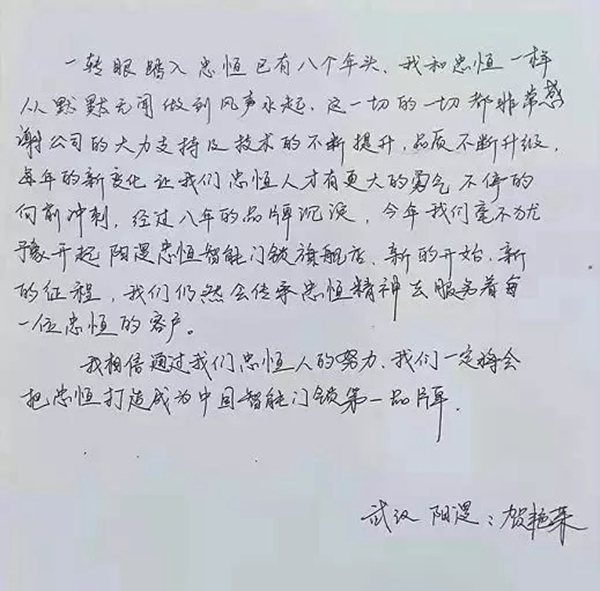 一转眼踏入忠恒已有八个年头、我和忠恒一样
从默默无闻做到风声水起、这一切的一切都非常感
谢公司的大力支持及技术的不断提升,品质不断升级,
每年的新变化让我们忠恒人才有更大的勇气不停的
向前冲刺,经过八年的品牌沉淀,今年我们毫不犹
豫开起阳逻忠恒智能门锁旗舰店、新的开始、新
的征程,我们仍然会传承忠恒精神去服务着每
一位忠恒的客户。
我相信通过我们忠恒人的努力、我们一定将会
把忠恒打造成为中国智能门锁第一品牌.
武汉 阳逻:贺艳荣